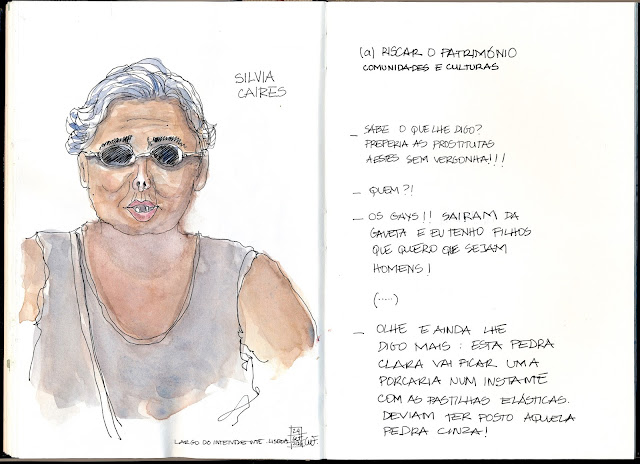 SILVIA
CAIRES
LARGO DO INTENDENTE LISBOA
(a) RISCAR O PATRIMÓNIO
COMUNIDADES E CULTURAS
_ SABE O QUE LHE DIGO?
PREFERIA AS PROSTITUTAS
A ESSES SEM VERGONHA!!!
_ QUEM?!
_ OS GAYS!! SAIRAM DA
GAVETA E EU TENHO FILHOS
QUE QUERO QUE SEJAM
HOMENS!
(.....)
_ OLHE E AINDA LHE
DIGO MAIS: ESTA PEDRA
CLARA VAI FICAR UMA
PORCARIA NUM INSTANTE
COM AS PASTILHAS ELÁSTICAS.
DEVIAM TER POSTO AQUELA
PEDRA CINZA!